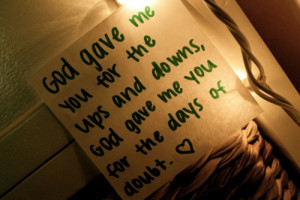 God gave me
you for the
ups and downs,
God gave me you
for the days of
doubt. ♡